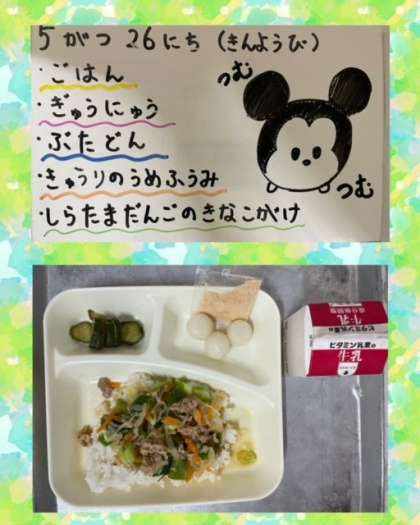 5がつ 26にち (きんようび)
・ごはん
・ぎゅうにゅう
・ぶたどん
・きゅうりのうめふうみ
・しらたまだんごのきなこがけ
つむ
つむ
牛乳
ビタミン乳業の
牛乳